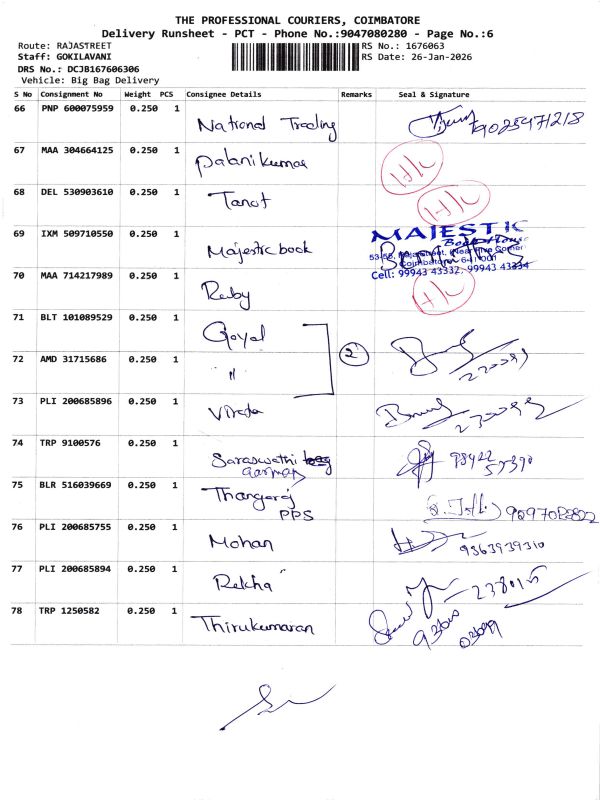 THE PROFESSIONAL COURIERS, COIMBATORE
Delivery Runsheet - PCT - Phone No.:9047080280 - Page No.:6
Route: RAJASTREET
Staff: GOKILAVANI
DRS No.: DCJB167606306
Vehicle: Big Bag Delivery
RS No.: 1676063
RS Date: 26-Jan-2026
S No Consignment No Weight PCS Consignee Details Remarks Seal & Signature
66 PNP 600075959 0.250 1 National Trading 9025971218
67 MAA 304664125 0.250 1 Palanikumar H/L
68 DEL 530903610 0.250 1 Tanot H/L
69 IXM 509710550 0.250 1 Majestic book
MAJESTIC
Book House
Coimbatore - 641 001
Cell: 99943 43332, 99943 43334
70 MAA 714217989 0.250 1 Ruby H/L
71 BLT 101089529 0.250 1 Goyal
2
72 AMD 31715686 0.250 1 "
73 PLI 200685896 0.250 1
74 TRP 9100576 0.250 1 Saraswathi
75 BLR 516039669 0.250 1 Thangaraj
PPS
76 PLI 200685755 0.250 1 Mohan 9363939310
77 PLI 200685894 0.250 1 Rekha
78 TRP 1250582 0.250 1 Thirukumaran